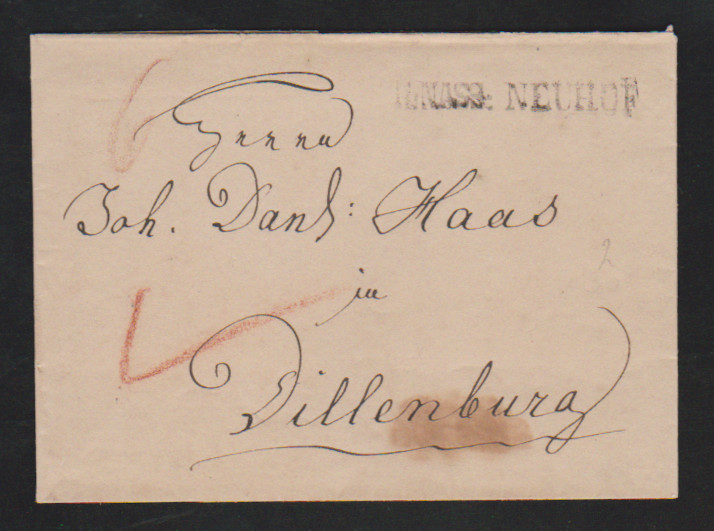 H.NASS: NEUHOF
6
Herrn
Joh. Danl: Haas
2
in
Dillenburg